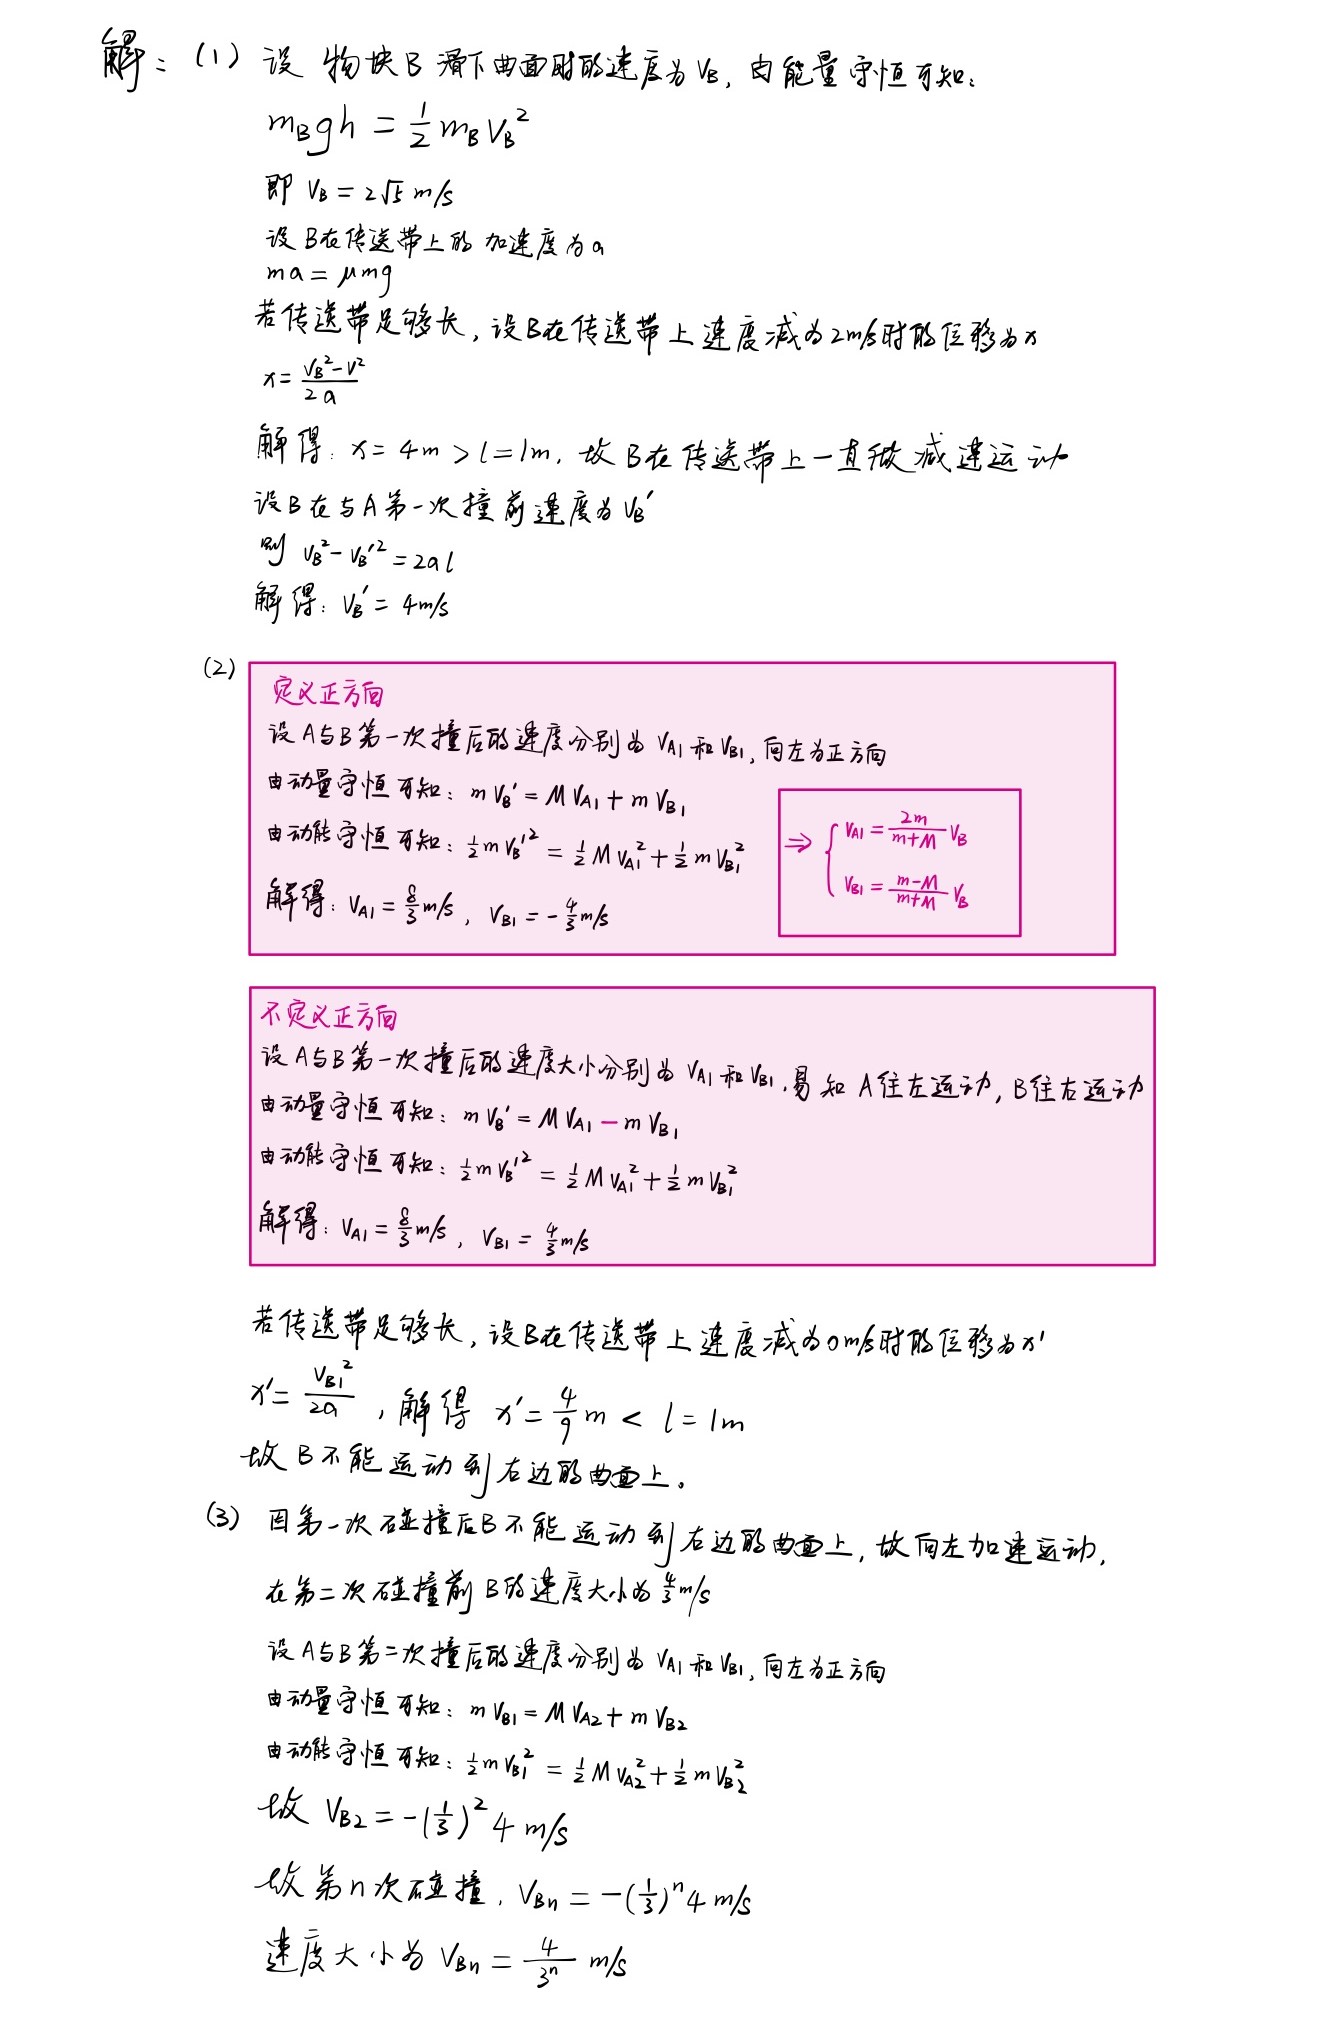 解：(1) 设 物块B 滑下曲面时的速度为 VB，由能量守恒可知：
mBgh = 1/2 mBVB²
即 VB = 2√5 m/s
设B在传送带上的加速度为a
ma = μmg
若传送带足够长，设B在传送带上速度减为2m/s时的位移为x
x = (VB²-V²)/2a
解得：x = 4m > l = 1m，故B在传送带上一直做减速运动
设B在与A第一次撞前速度为VB'
则 VB² - VB'² = 2al
解得：VB' = 4m/s
(2)
定义正方向
设A与B第一次撞后的速度分别为 VA1 和 VB1，向左为正方向
由动量守恒可知：mVB' = MVA1 + mVB1
由动能守恒可知：1/2 mVB'² = 1/2 MVA1² + 1/2 mVB1²
解得：VA1 = 8/3 m/s，VB1 = -4/3 m/s
⇒ { VA1 = 2m/(m+M) VB
VB1 = (m-M)/(m+M) VB
不定义正方向
设A与B第一次撞后的速度大小分别为 VA1 和 VB1，易知 A往左运动，B往右运动
由动量守恒可知：mVB' = MVA1 - mVB1
由动能守恒可知：1/2 mVB'² = 1/2 MVA1² + 1/2 mVB1²
解得：VA1 = 8/3 m/s，VB1 = 4/3 m/s
若传送带足够长，设B在传送带上速度减为0m/s时的位移为x'
x' = VB1²/2a，解得 x' = 4/9 m < l = 1m
故B不能运动到右边的曲面上。
(3) 因第一次碰撞后B不能运动到右边的曲面上，故向左加速运动，
在第二次碰撞前B的速度大小为 4/3 m/s
设A与B第二次撞后的速度分别为 VA1 和 VB1，向左为正方向
由动量守恒可知：mVB1 = MVA2 + mVB2
由动能守恒可知：1/2 mVB1² = 1/2 MVA2² + 1/2 mVB2²
故 VB2 = -(1/3)² 4 m/s
故第n次碰撞，VBn = -(1/3)ⁿ 4 m/s
速度大小为 VBn = 4/3ⁿ m/s